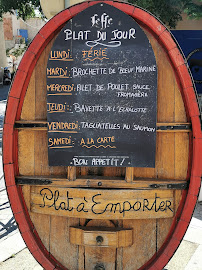 PLAT DU JOUR
LUNDI : FERIE
MARDI : BROCHETTE DE BOEUF MARINE
MERCREDI : FILET DE POULET SAUCE
FROMAGÈRE
JEUDI : BAVETTE A L'ECHALOTTE
VENDREDI : TAGLIATELLES AU SAUMON
SAMEDI : A LA CARTE
BON APPETIT !
Plat à Emporter